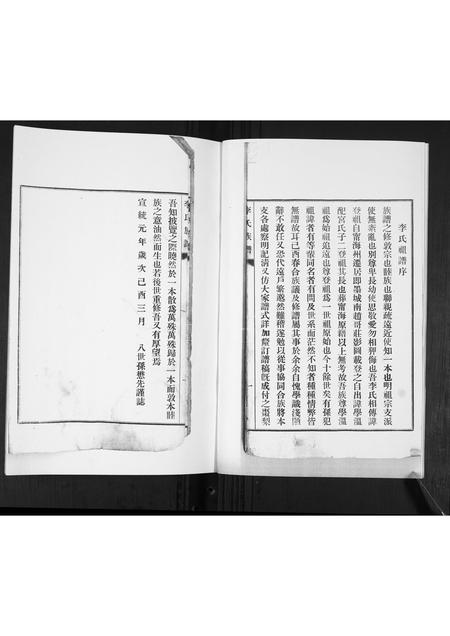 李氏祖譜序
族譜之修敦宗也睦族也聯視疏遠近使知一本也明祖宗支派
使無紊亂也別尊卑長幼使思敬愛勿相狎侮也吾李氏相傳諱
登祖自甯海州遷居即墨城南趙哥莊影圖載登之自出諱學溫
配宮氏子二登祖其長也葬甯海原籍以上無考故吾族尊學溫
祖爲始祖追遠也尊登祖爲一世祖原始也今十餘世矣有孫犯
祖諱者有等輩同名者有問及世系而茫然不知者種種情弊皆
無譜故耳己酉春合族議及修譜屬其事於余余自愧學識淺陋
辭不敢任又恐代遠戶繁邈然難稽遂勉以從事協同合族將本
支各處察明記清又仿大家譜式詳加釐訂譜稿旣成付之棗梨
李氏族譜
吾知披覽之際曉然於一本散爲萬殊萬殊歸於一本而敦本睦
族之意油然而生也若後世重修吾又有厚望焉
宣統元年歲次己酉三月 八世孫懋先謹誌
李氏族譜